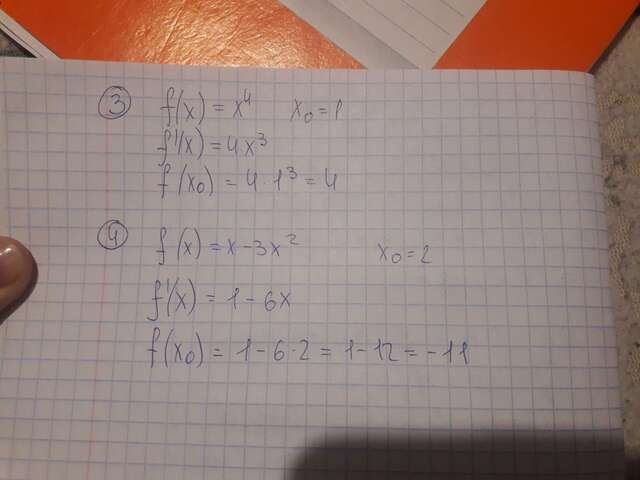 3 f(x) = x⁴ x₀ = 1
f'(x) = 4x³
f(x₀) = 4 · 1³ = 4
4 f(x) = x - 3x² x₀ = 2
f'(x) = 1 - 6x
f(x₀) = 1 - 6 · 2 = 1 - 12 = -11